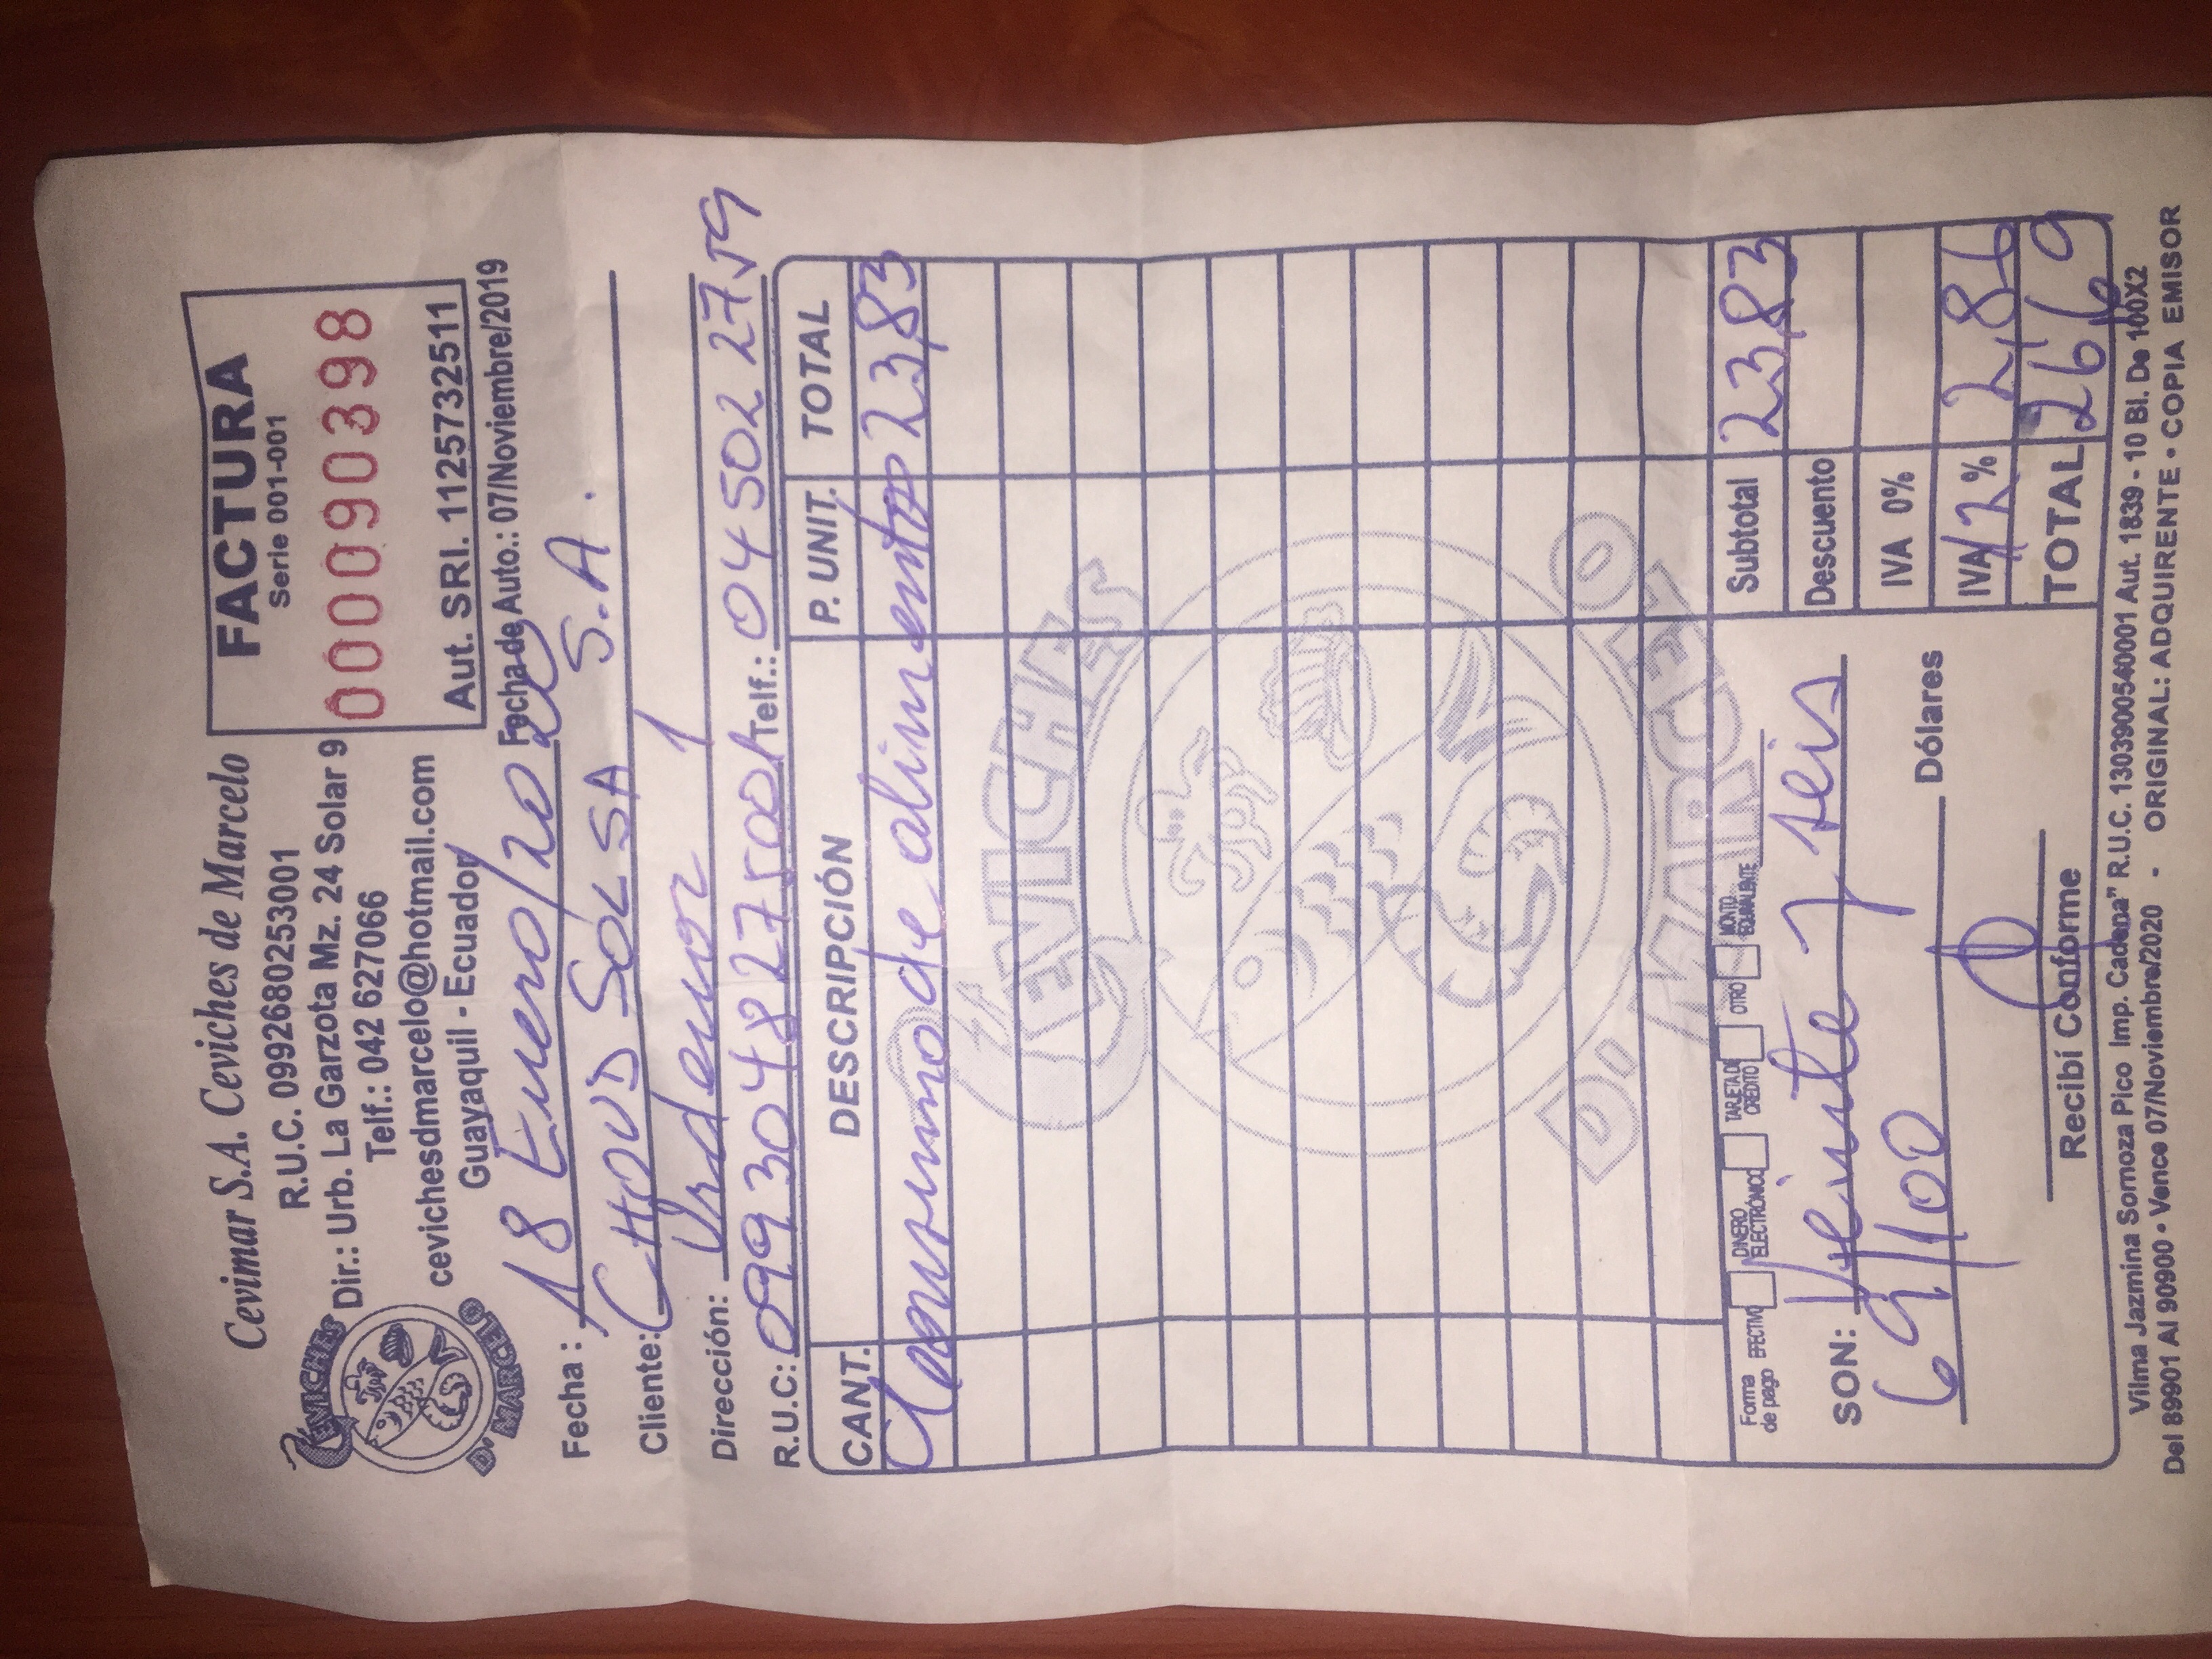 Cevimar S.A. Ceviches de Marcelo
R.U.C. 0992680253001
Dir.: Urb. La Garzota Mz. 24 Solar 9
Telf.: 042 627066
cevichesdmarcelo@hotmail.com
Guayaquil - Ecuador
CEVICHES
D' MARCELO
FACTURA
Serie 001-001
000090398
Aut. SRI. 1125732511
Fecha de Auto.: 07/Noviembre/2019
Fecha: 18 Enero/2020
Cliente: CHOUD SOLSA S.A.
Dirección: Urdenor 1
R.U.C: 0993048275001 Telf.: 045022759
CANT. DESCRIPCIÓN P. UNIT. TOTAL
Consumo de alimentos 23,83
CEVICHES
D' MARCELO
Forma de pago EFECTIVO DINERO ELECTRÓNICO TARJETA DE CRÉDITO OTRO MONTO EQUIVALENTE
Subtotal 23,83
SON: Veinte y seis
Descuento
69/100 Dólares
IVA 0%
IVA 12% 2,86
Recibí Conforme
TOTAL 26,69
Vilma Jazmina Sornoza Pico Imp. Cadena" R.U.C. 1303900540001 Aut. 1839 - 10 Bl. De 100X2
Del 89901 Al 90900 • Vence 07/Noviembre/2020 - ORIGINAL: ADQUIRENTE • COPIA EMISOR